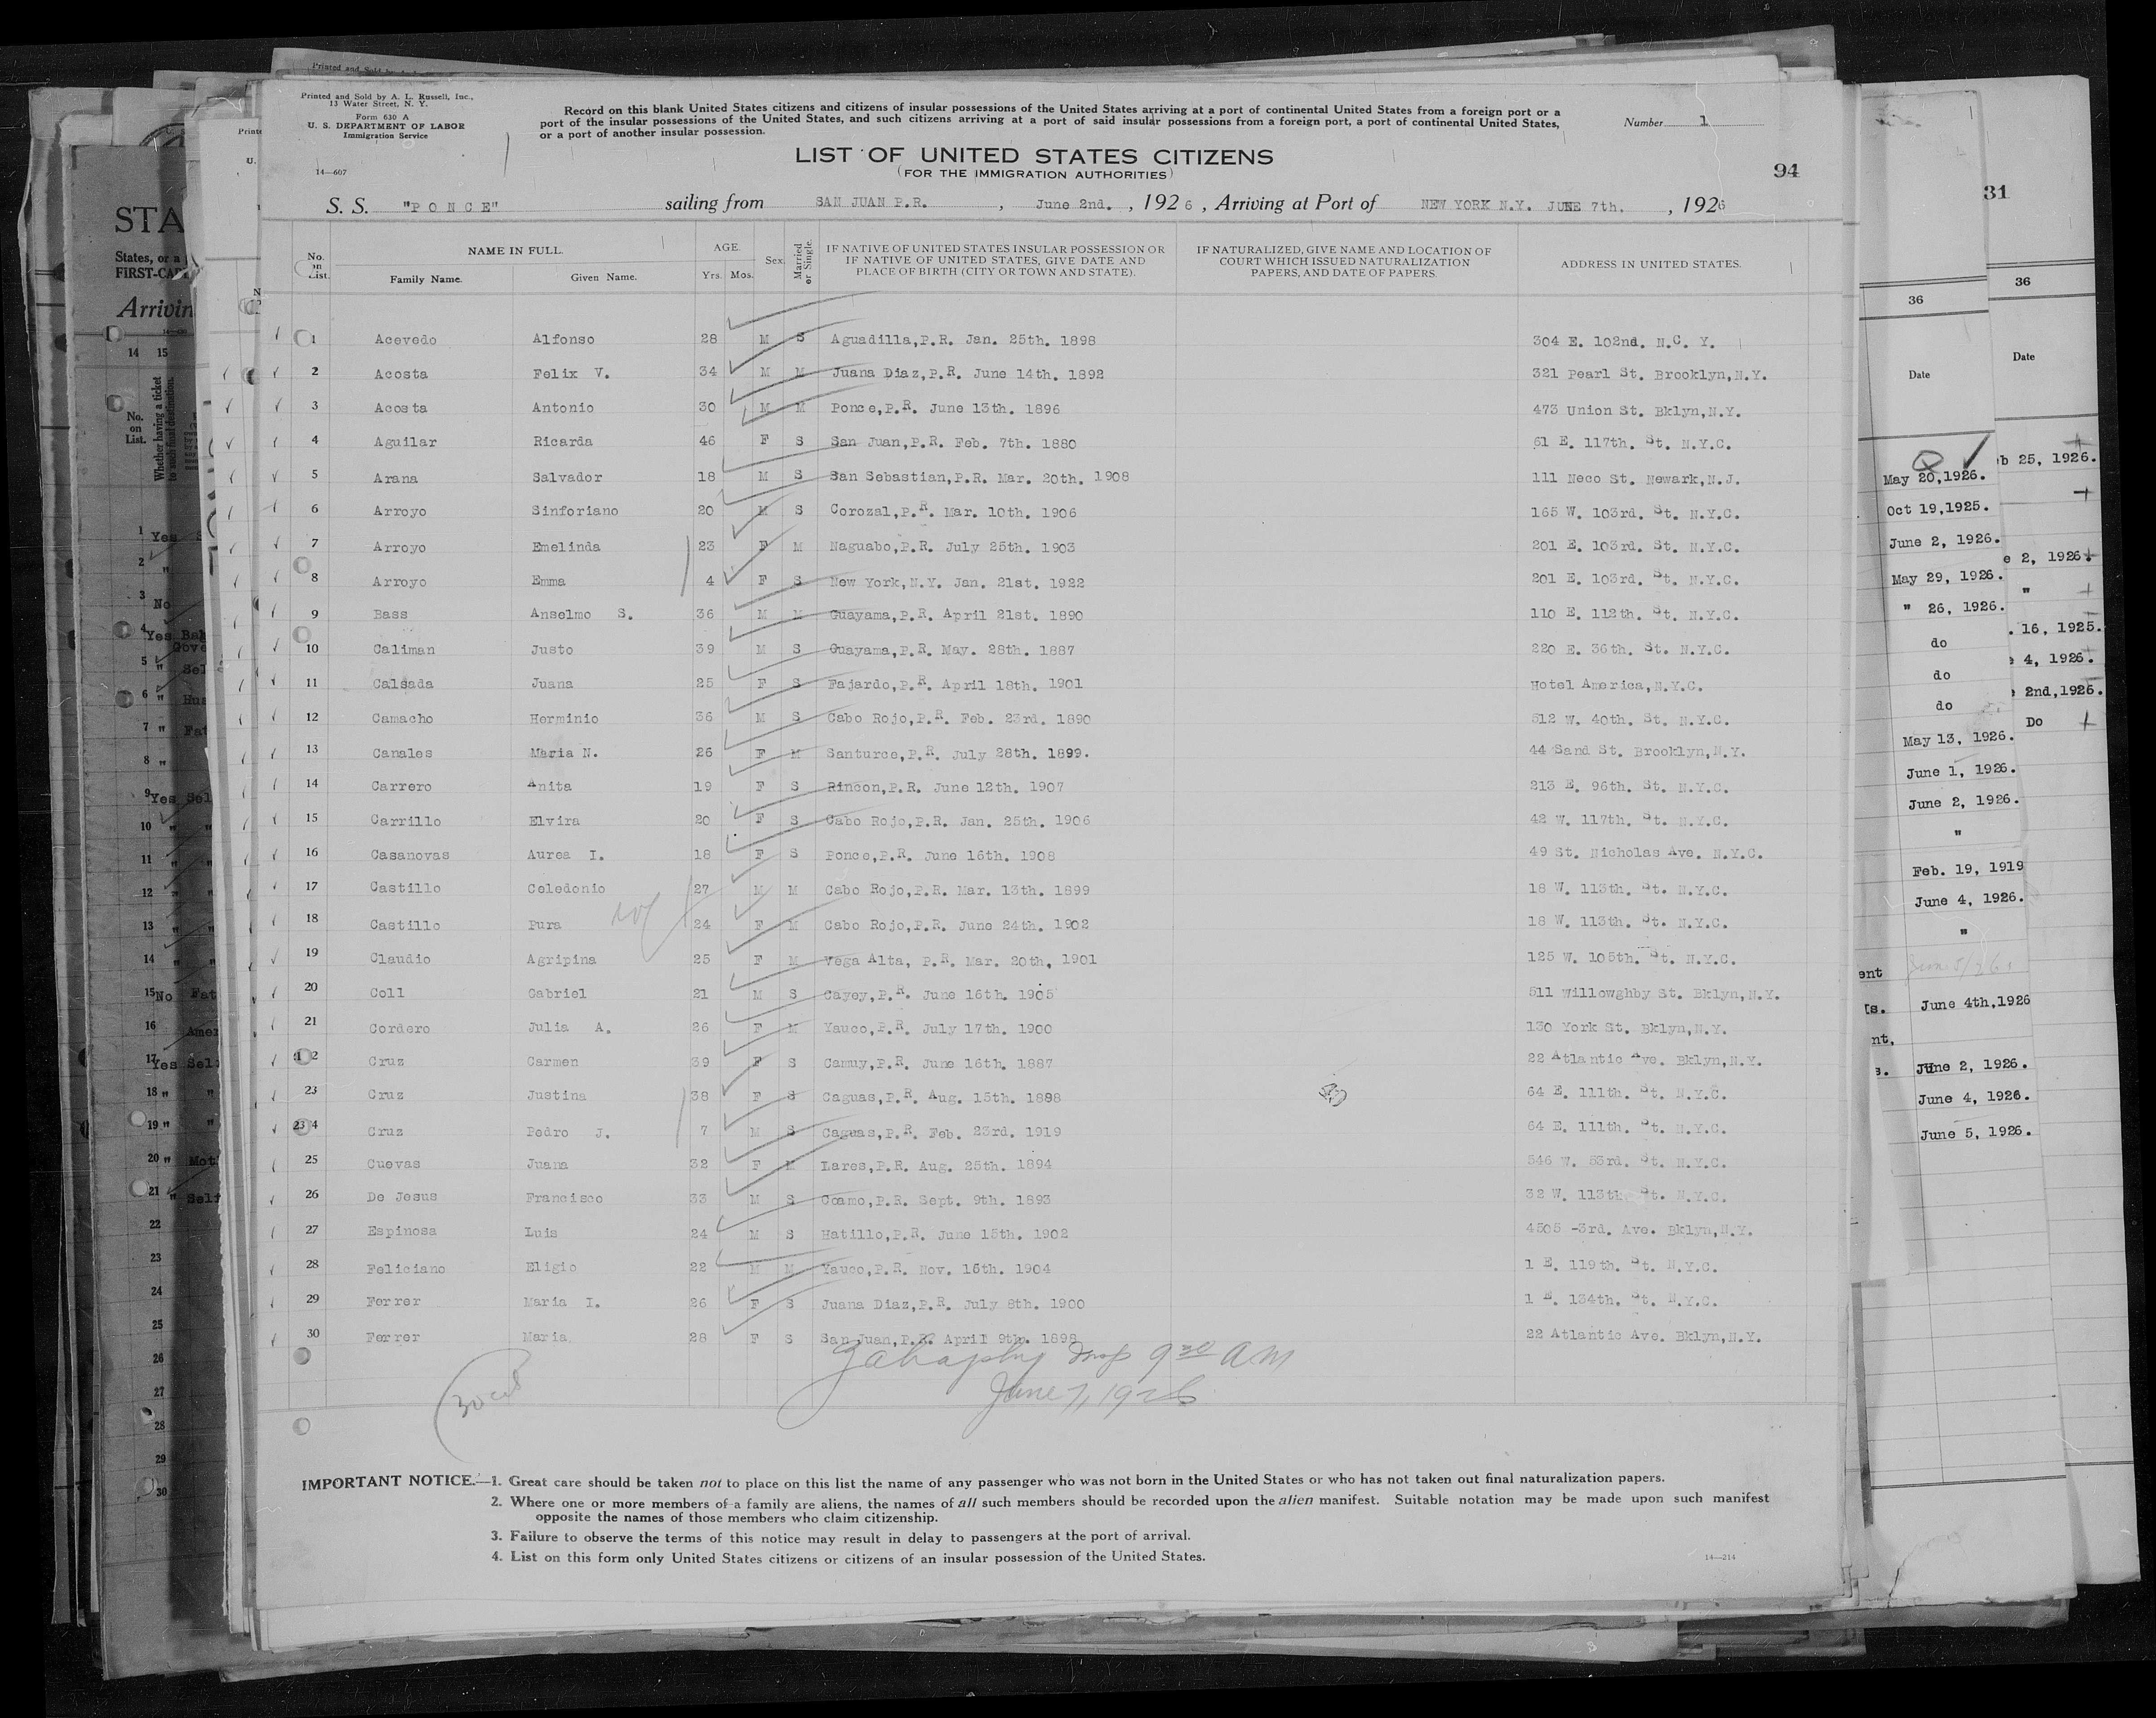 Printed and Sold by A. L. Russell, Inc.,
13 Water Street, N. Y.
Form 630 A
U. S. DEPARTMENT OF LABOR
Immigration Service
14—607
Record on this blank United States citizens and citizens of insular possessions of the United States arriving at a port of continental United States from a foreign port or a
port of the insular possessions of the United States, and such citizens arriving at a port of said insular possessions from a foreign port, a port of continental United States,
or a port of another insular possession.
Number 1
LIST OF UNITED STATES CITIZENS
(FOR THE IMMIGRATION AUTHORITIES)
94
S. S. "PONCE" sailing from SAN JUAN P.R. , June 2nd. , 1926 , Arriving at Port of NEW YORK N.Y. JUNE 7th. , 1926
No. on List. NAME IN FULL. Family Name. Given Name. AGE. Yrs. Mos. Sex. Married or Single. IF NATIVE OF UNITED STATES INSULAR POSSESSION OR IF NATIVE OF UNITED STATES, GIVE DATE AND PLACE OF BIRTH (CITY OR TOWN AND STATE). IF NATURALIZED, GIVE NAME AND LOCATION OF COURT WHICH ISSUED NATURALIZATION PAPERS, AND DATE OF PAPERS. ADDRESS IN UNITED STATES.
1 Acevedo Alfonso 28 M S Aguadilla,P.R. Jan. 25th. 1898 304 E. 102nd. N.C. Y.
2 Acosta Felix V. 34 M M Juana Diaz,P.R. June 14th. 1892 321 Pearl St. Brooklyn,N.Y.
3 Acosta Antonio 30 M M Ponce,P.R. June 13th. 1896 473 Union St. Bklyn,N.Y.
4 Aguilar Ricarda 46 F S San Juan,P.R. Feb. 7th. 1880 61 E. 117th. St. N.Y.C.
5 Arana Salvador 18 M S San Sebastian,P.R. Mar. 20th. 1908 111 Neco St. Newark,N.J.
6 Arroyo Sinforiano 20 M S Corozal,P.R. Mar. 10th. 1906 165 W. 103rd. St. N.Y.C.
7 Arroyo Emelinda 23 F M Naguabo,P.R. July 25th. 1903 201 E. 103rd. St. N.Y.C.
8 Arroyo Emma 4 F S New York,N.Y. Jan. 21st. 1922 201 E. 103rd. St. N.Y.C.
9 Bass Anselmo S. 36 M M Guayama,P.R. April 21st. 1890 110 E. 112th. St. N.Y.C.
10 Caliman Justo 39 M S Guayama,P.R. May. 28th. 1887 220 E. 36th. St. N.Y.C.
11 Calsada Juana 25 F S Fajardo,P.R. April 18th. 1901 Hotel America,N.Y.C.
12 Camacho Herminio 36 M S Cabo Rojo,P.R. Feb. 23rd. 1890 512 W. 40th. St. N.Y.C.
13 Canales Maria N. 26 F M Santurce,P.R. July 28th. 1899. 44 Sand St. Brooklyn,N.Y.
14 Carrero Anita 19 F S Rincon,P.R. June 12th. 1907 213 E. 96th. St. N.Y.C.
15 Carrillo Elvira 20 F S Cabo Rojo,P.R. Jan. 25th. 1906 42 W. 117th. St. N.Y.C.
16 Casanovas Aurea I. 18 F S Ponce,P.R. June 16th. 1908 49 St. Nicholas Ave. N.Y.C.
17 Castillo Celedonio 27 M M Cabo Rojo,P.R. Mar. 13th. 1899 18 W. 113th. St. N.Y.C.
18 Castillo Pura 24 F M Cabo Rojo,P.R. June 24th. 1902 18 W. 113th. St. N.Y.C.
19 Claudio Agripina 25 F M Vega Alta, P.R. Mar. 20th, 1901 125 W. 105th. St. N.Y.C.
20 Coll Gabriel 21 M S Cayey,P.R. June 16th. 1905 511 Willowghby St. Bklyn,N.Y.
21 Cordero Julia A. 26 F M Yauco,P.R. July 17th. 1900 130 York St. Bklyn,N.Y.
2 Cruz Carmen 39 F S Camuy,P.R. June 16th. 1887 22 Atlantic Ave. Bklyn,N.Y.
23 Cruz Justina 38 F S Caguas,P.R. Aug. 15th. 1888 64 E. 111th. St. N.Y.C.
4 Cruz Pedro J. 7 M S Caguas,P.R. Feb. 23rd. 1919 64 E. 111th. St. N.Y.C.
25 Cuevas Juana 32 F M Lares,P.R. Aug. 25th. 1894 546 W. 53rd. St. N.Y.C.
26 De Jesus Francisco 33 M S Coamo,P.R. Sept. 9th. 1893 32 W. 113th St. N.Y.C.
27 Espinosa Luis 24 M S Hatillo,P.R. June 15th. 1902 4505 -3rd. Ave. Bklyn,N.Y.
28 Feliciano Eligio 22 M M Yauco,P.R. Nov. 15th. 1904 1 E. 119th. St. N.Y.C.
29 Ferrer Maria I. 26 F S Juana Diaz,P.R. July 8th. 1900 1 E. 134th. St. N.Y.C.
30 Ferrer Maria 28 F S San Juan,P.R. April 9th. 1898 22 Atlantic Ave. Bklyn,N.Y.
9 30 AM
June 7, 1926
IMPORTANT NOTICE.—1. Great care should be taken not to place on this list the name of any passenger who was not born in the United States or who has not taken out final naturalization papers.
2. Where one or more members of a family are aliens, the names of all such members should be recorded upon the alien manifest. Suitable notation may be made upon such manifest
opposite the names of those members who claim citizenship.
3. Failure to observe the terms of this notice may result in delay to passengers at the port of arrival.
4. List on this form only United States citizens or citizens of an insular possession of the United States.
14—214
36
Date
May 20,1926.
Oct 19,1925.
June 2, 1926.
May 29, 1926.
" 26, 1926.
do
do
do
May 13, 1926.
June 1, 1926.
June 2, 1926.
"
Feb. 19, 1919
June 4, 1926.
"
June 4th,1926
June 2, 1926.
June 4, 1926.
June 5, 1926.
31
36
Date
25, 1926.
2, 1926
"
16, 1925.
4, 1926.
2nd,1926.
Do